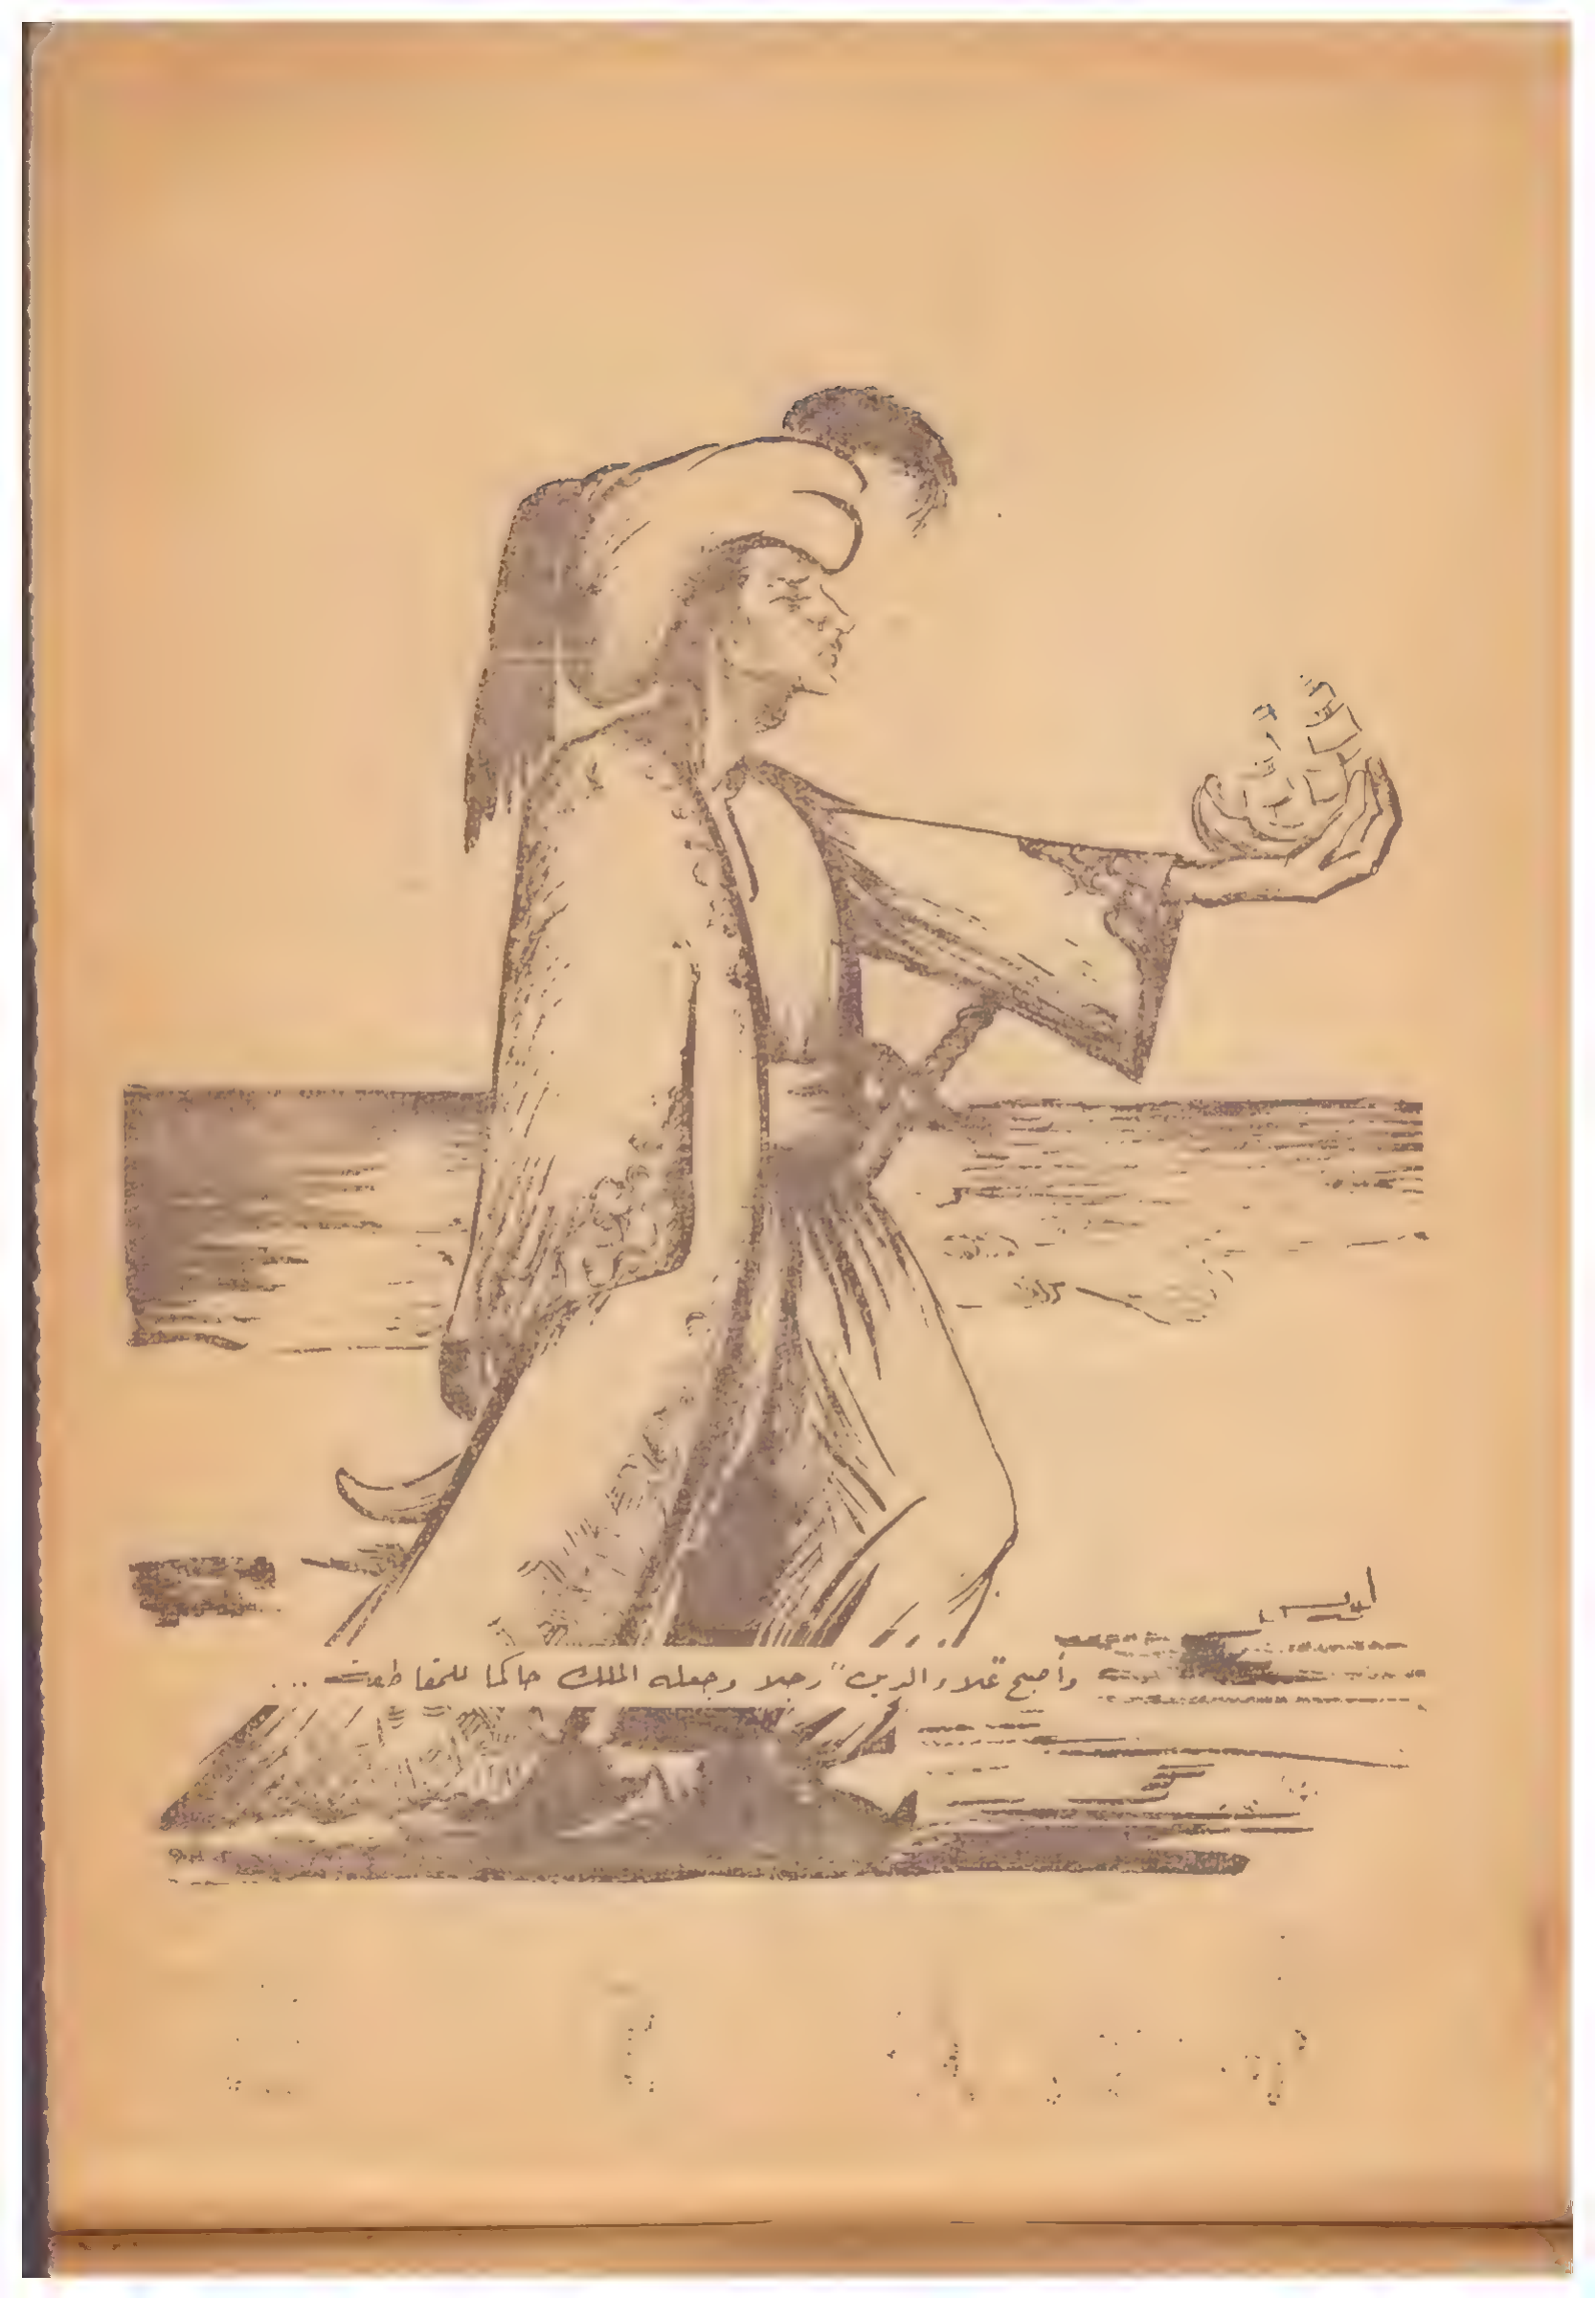 وأصبح "علاء الدين" رجلا وجعله الملك حاكما للمقاطعة ...